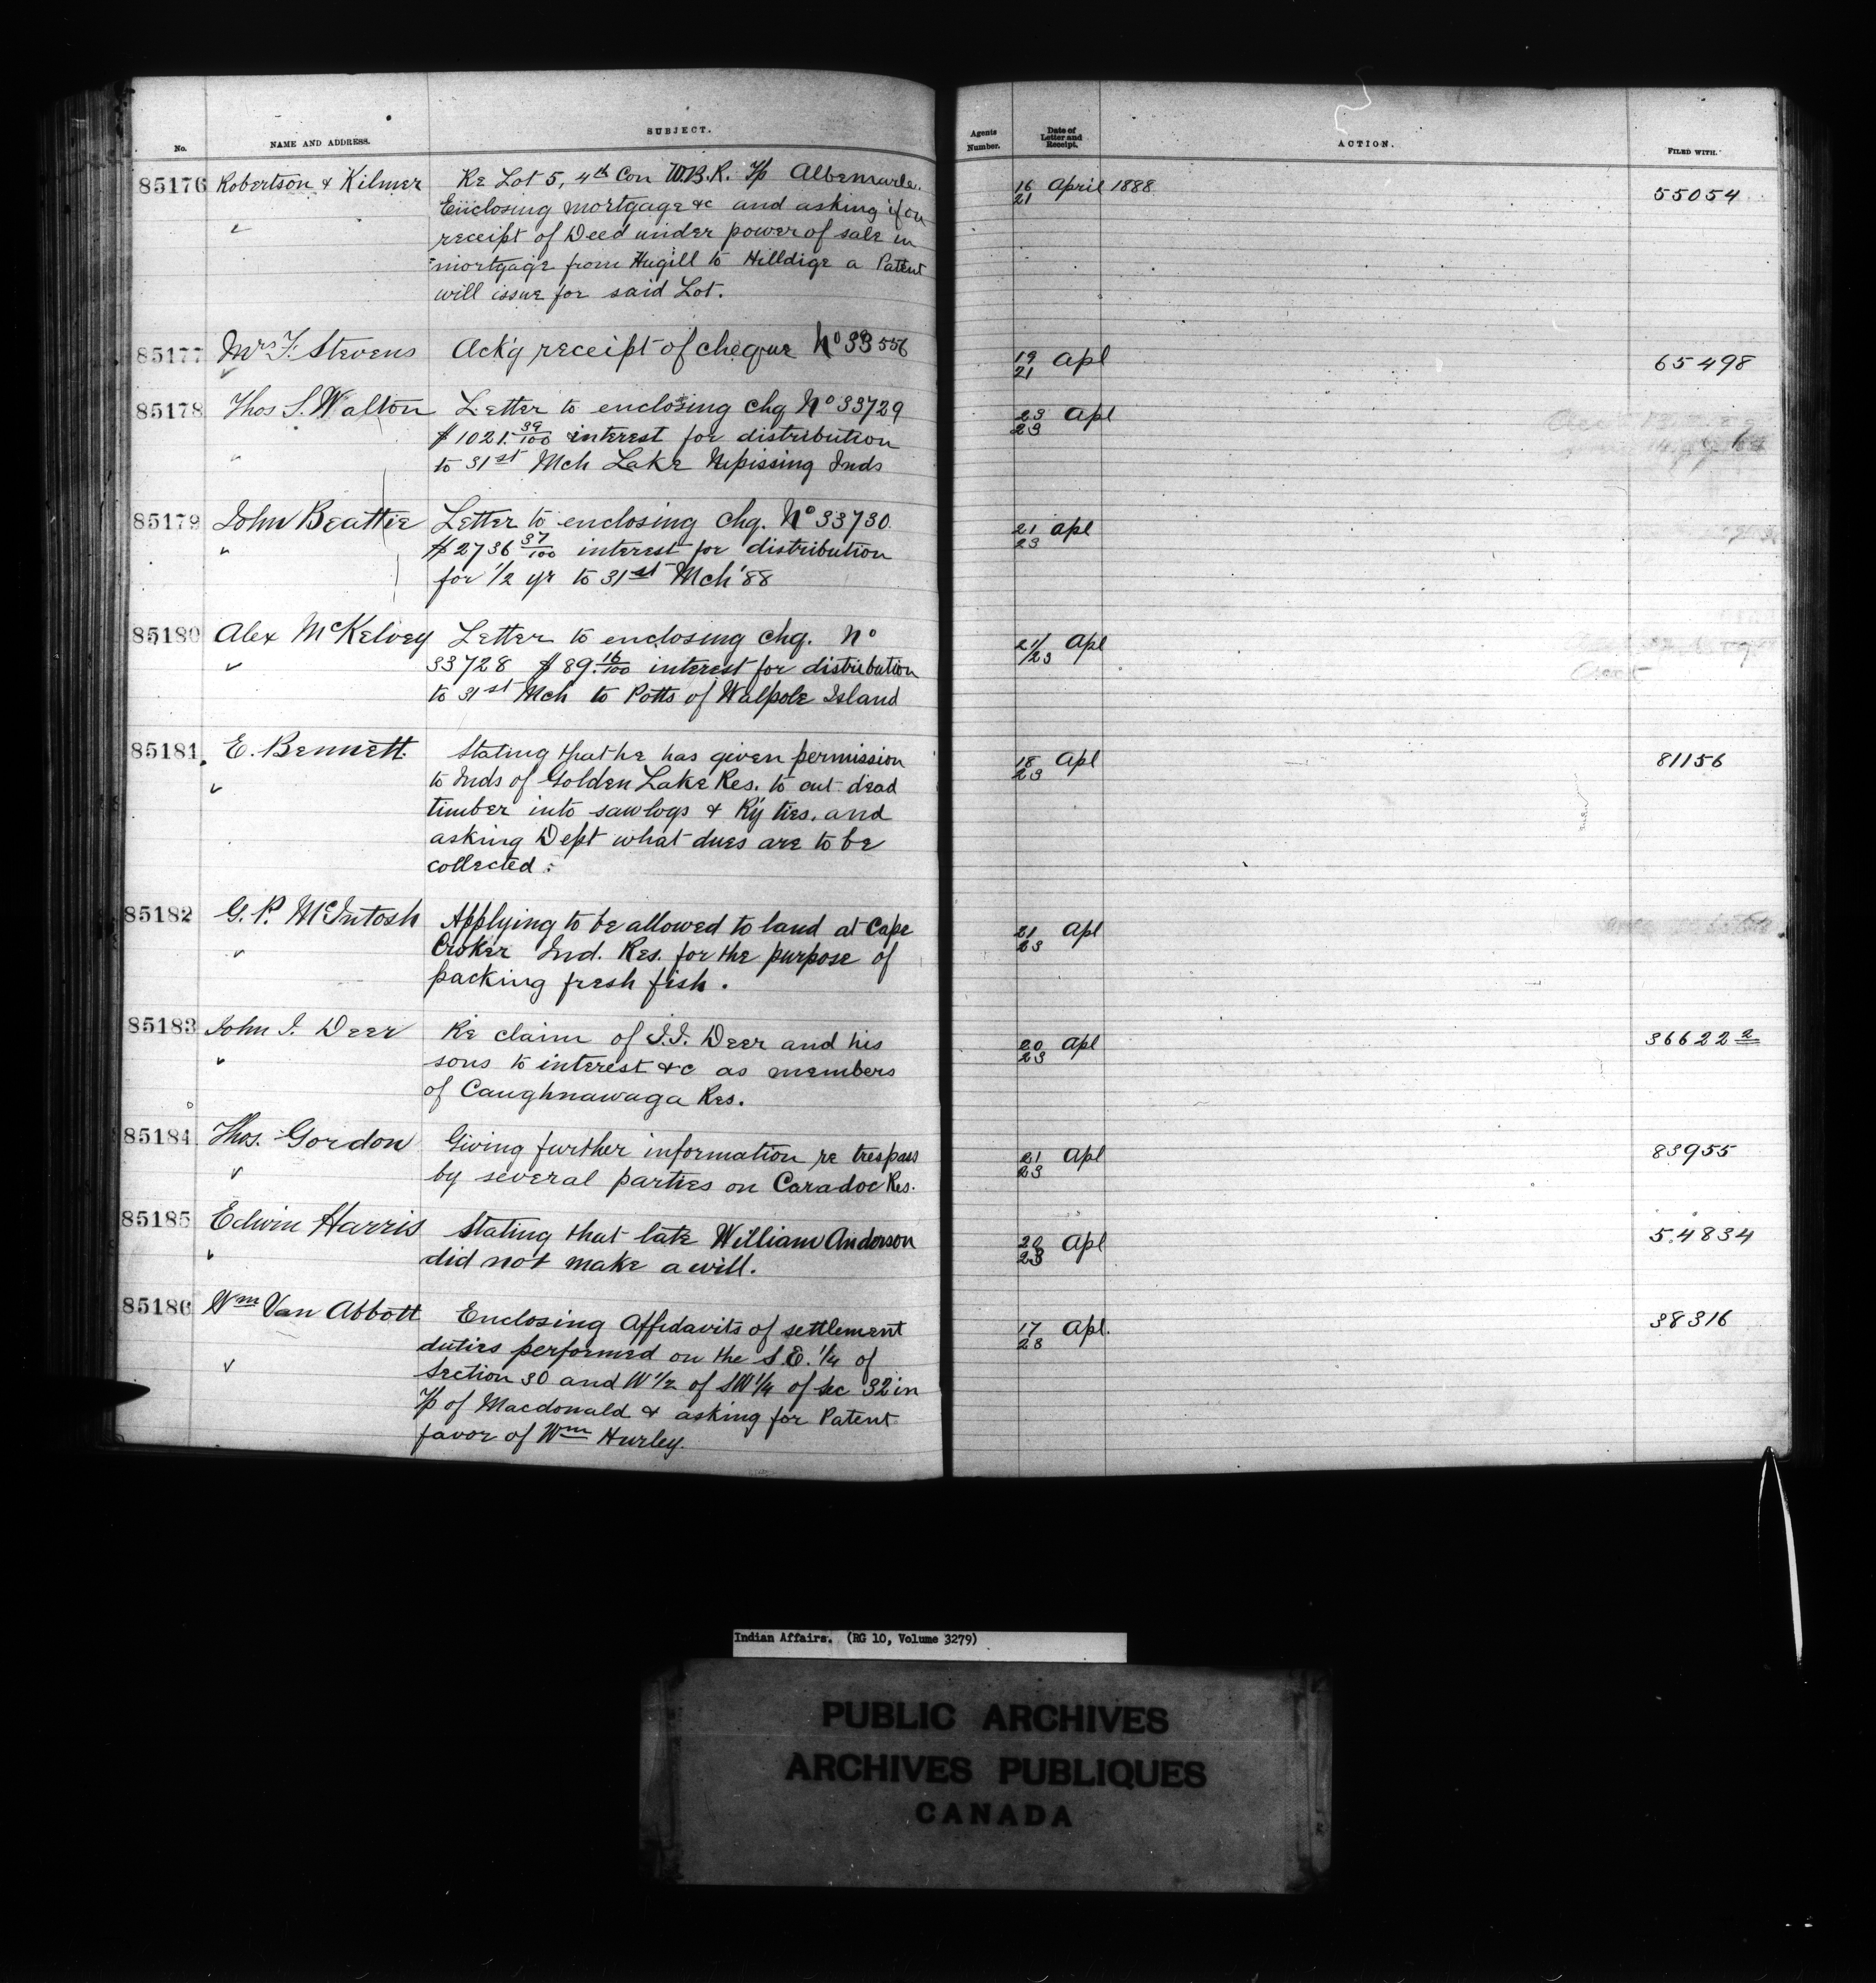 No. NAME AND ADDRESS. SUBJECT. Agents Number. Date of Letter and Receipt. ACTION. FILED WITH.
85176 Robertson & Kilmer Re Lot 5, 4th Con W.B.R. Tp Albemarle. 16/21 April 1888 55054
Enclosing mortgage &c and asking if on
" receipt of Deed under power of sale in
mortgage from Hugill to Hilldige a Patent
will issue for said Lot.
85177 Mrs F. Stevens Ack'g receipt of cheque No 33556 19/21 Apl 65498
85178 Thos S. Walton Letter to enclosing chq No 33729 23/23 Apl
$1021.39/100 interest for distribution
" to 31st Mch Lake Nipissing Inds
85179 John Beattie Letter to enclosing chq. No 33730 21/23 Apl
" $2736 37/100 interest for distribution
for 1/2 yr to 31st Mch '88
85180 Alex McKelvey Letter to enclosing chq. No 21/23 Apl
33728 $89.16/100 interest for distribution
to 31st Mch to Potts of Walpole Island
85181 E. Bennett. Stating that he has given permission 18/23 Apl 81156
to Inds of Golden Lake Res. to cut dead
timber into sawlogs & R'y ties. and
asking Dept what dues are to be
collected.
85182 G. P. McIntosh Applying to be allowed to land at Cape 21/23 Apl
Croker Ind. Res. for the purpose of
packing fresh fish.
85183 John I. Deer Re claim of J.I. Deer and his 20/23 Apl 36622 2
sons to interest &c as members
of Caughnawaga Res.
85184 Thos. Gordon Giving further information re trespass 21/23 Apl 83955
by several parties on Caradoc Res.
85185 Edwin Harris Stating that late William Anderson 20/23 Apl 54834
did not make a will.
85186 Wm Van Abbott Enclosing Affidavits of settlement 17/23 Apl. 38316
duties performed on the S.E. 1/4 of
Section 30 and W 1/2 of SW 1/4 of Sec 32 in
Tp of Macdonald & asking for Patent
favor of Wm Hurley.
Indian Affairs. (RG 10, Volume 3279)
PUBLIC ARCHIVES
ARCHIVES PUBLIQUES
CANADA